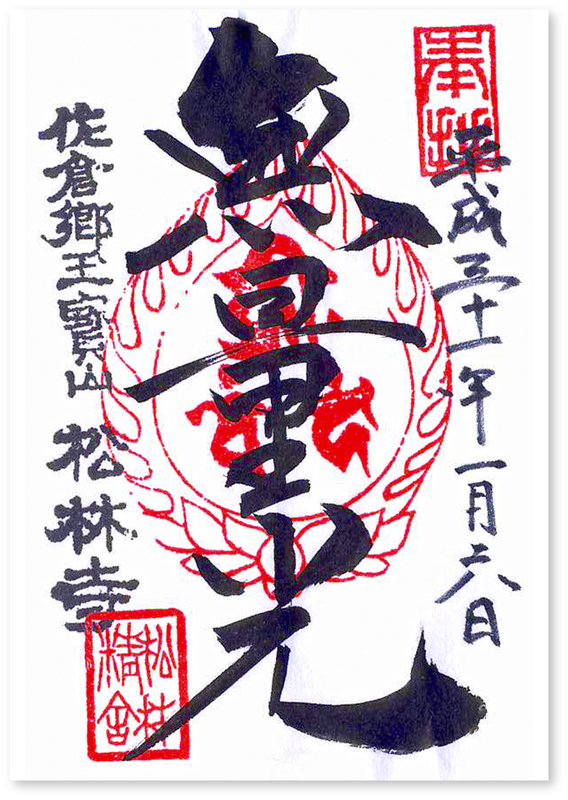 奉拝
平成三十一年一月六日
無量光
佐倉郷玉寶山
松林寺
松林精舎